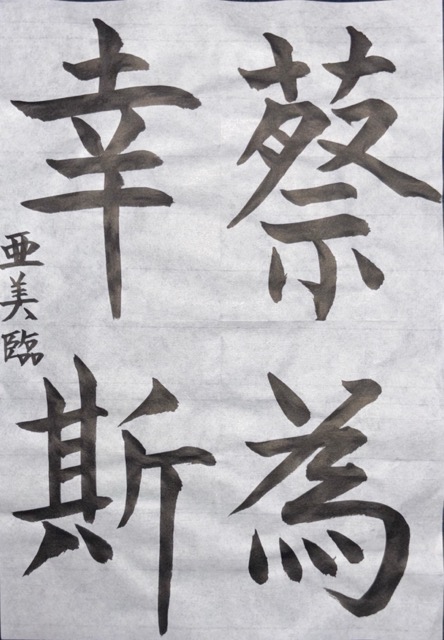 蔡為
幸斯
亜美臨